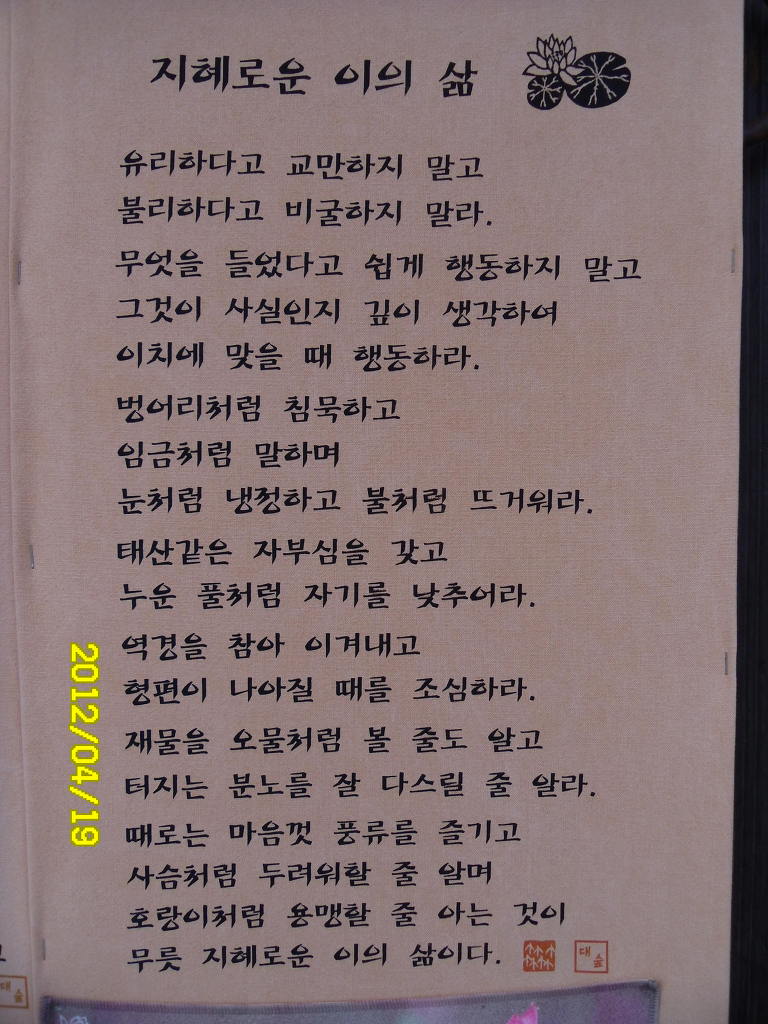 지혜로운 이의 삶
유리하다고 교만하지 말고
불리하다고 비굴하지 말라.
무엇을 들었다고 쉽게 행동하지 말고
그것이 사실인지 깊이 생각하여
이치에 맞을 때 행동하라.
벙어리처럼 침묵하고
임금처럼 말하며
눈처럼 냉정하고 불처럼 뜨거워라.
태산같은 자부심을 갖고
누운 풀처럼 자기를 낮추어라.
역경을 참아 이겨내고
형편이 나아질 때를 조심하라.
재물을 오물처럼 볼 줄도 알고
터지는 분노를 잘 다스릴 줄 알라.
때로는 마음껏 풍류를 즐기고
사슴처럼 두려워할 줄 알며
호랑이처럼 용맹할 줄 아는 것이
무릇 지혜로운 이의 삶이다.
대숲
2012/04/19